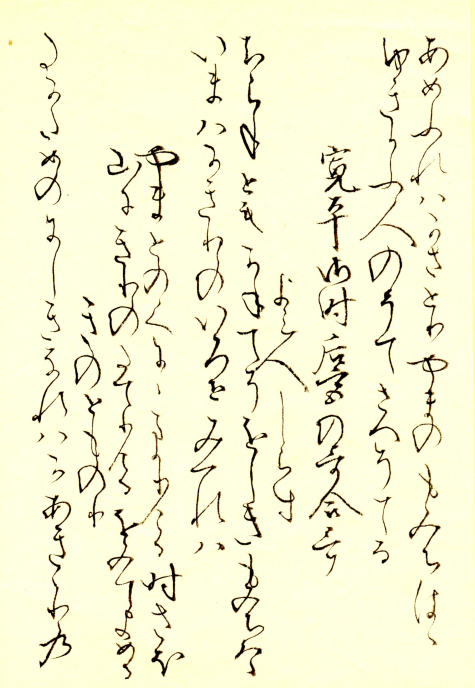 あめふれはかさとりやまのもみちはゝ
ゆきかふ人のそてさへそてる
寛平御時后宮の哥合哥
よみ人しらす
ちらねともかねてそをしきもみちはゝ
いまはかきりのいろとみつれは
やまとのくにゝまかりける時さほ
山にきりのたてりけるをみてよめる
きのとものり
たかためのにしきなれはかあきゝりの